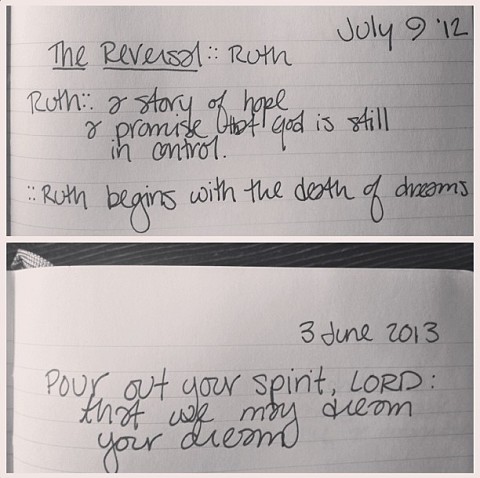 July 9 '12
The Reversal :: Ruth
Ruth :: a story of hope
a promise that god is still
in control.
:: Ruth begins with the death of dreams
3 June 2013
Pour out your spirit, LORD:
that we may dream
your dream